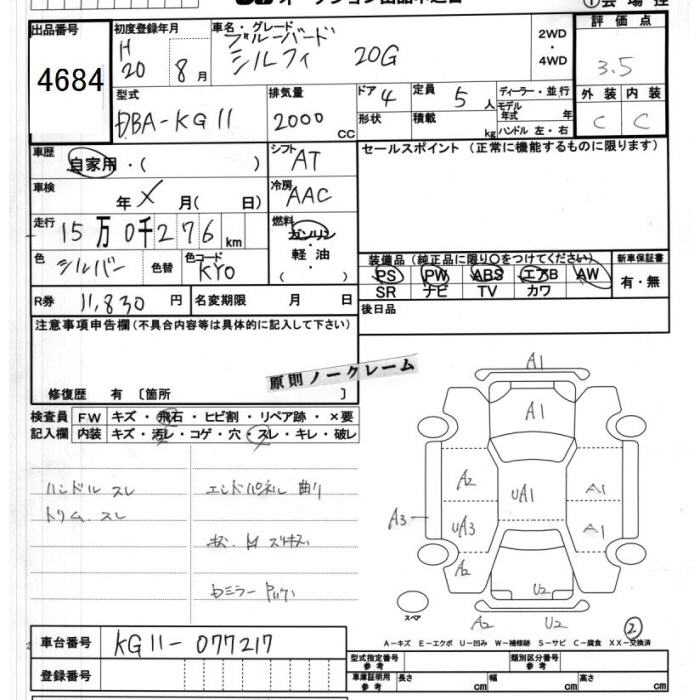 オークション出品申込書
①会場控
出品番号 初度登録年月 車名・グレード 評価点
4684 H20 8月 ブルーバードシルフィ 20G 2WD・4WD 3.5
型式 排気量 ドア 4 定員 5人 ディーラー・並行 外装 内装
DBA-KG11 2000 CC 形状 積載 kg モデル年式 年 C C
ハンドル 左・右
車歴 自家用・( ) シフト AT セールスポイント (正常に機能するものに限ります)
車検 年 X 月( 日) 冷房 AAC
走行 15万0千276km 燃料 ガソリン・軽油 ( )
色 シルバー 色替 色コード KYO
装備品 (純正品に限り○をつけてください) 新車保証書
PS PW ABS エアB AW 有・無
SR ナビ TV カワ
R券 11,830円 名変期限 月 日 後日品
注意事項申告欄(不具合内容等は具体的に記入して下さい)
原則ノークレーム
修復歴 有 〔箇所 〕
検査員 FW キズ・飛石・ヒビ割・リペア跡・×要
記入欄 内装 キズ・汚レ・コゲ・穴・スレ・キレ・破レ
ハンドル スレ エンドパネル 曲り
トリム スレ
A1
A1
A2 UA1 A1
A3 UA3 A1
A2 U2
スペア A2 U2 ②
A-キズ E-エクボ U-凹み W-補修跡 S-サビ C-腐食 XX-交換済
車台番号 KG11-077217
型式指定番号 参考 類別区分番号 参考
登録番号 車庫証明用 参考 長さ cm 幅 cm 高さ cm